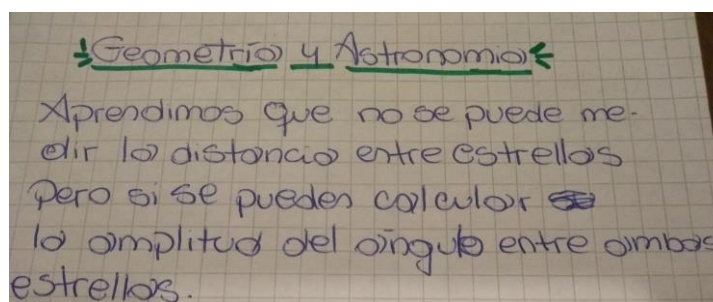 Geometría y Astronomia
Aprendimos que no se puede me-
dir la distancia entre estrellas
Pero si se pueden calcular
la amplitud del ángulo entre ambas
estrellas.